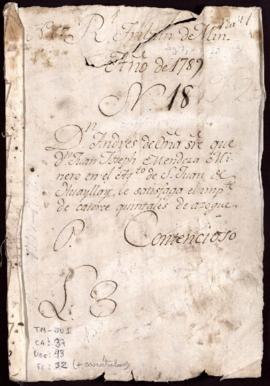 Rl Tribunal de Min
Año de 1789
N 18
Dn Andres de sre que
Dn Juan Joseph Mendoza Mi
nero en el Asto de S. Juan de
Huayllay, le satisfaga el impte
de catorce quintales de azogue
P. Contencioso
L. 3
TM-JU1
CA: 37
Doc: 93
FC: 32 (+ caratula)